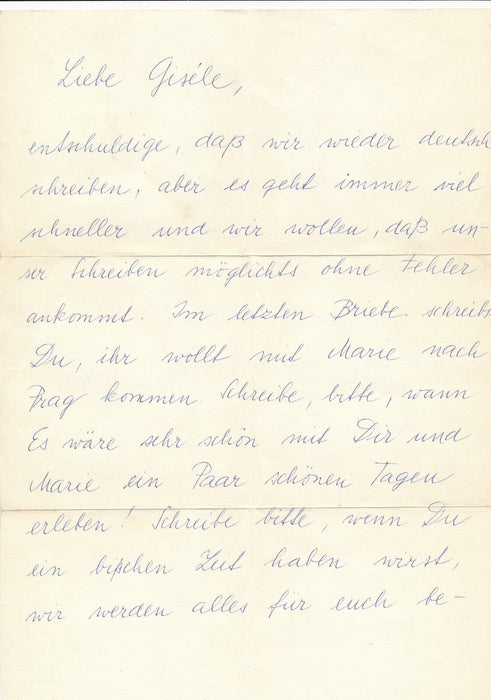 Liebe Giséle,
entschuldige, daß wir wieder deutsch
schreiben, aber es geht immer viel
schneller und wir wollen, daß un-
ser Schreiben möglichts ohne Fehler
ankommt. Im letzten Briebe schreibs
Du, ihr wollt mit Marie nach
Prag kommen. Schreibe, bitte, wann.
Es wäre sehr schön mit Dir und
Marie ein Paar schönen Tagen
erleben! Schreibe bitte, wenn Du
ein bißchen Zeit haben wirst,
wir werden alles für euch be-